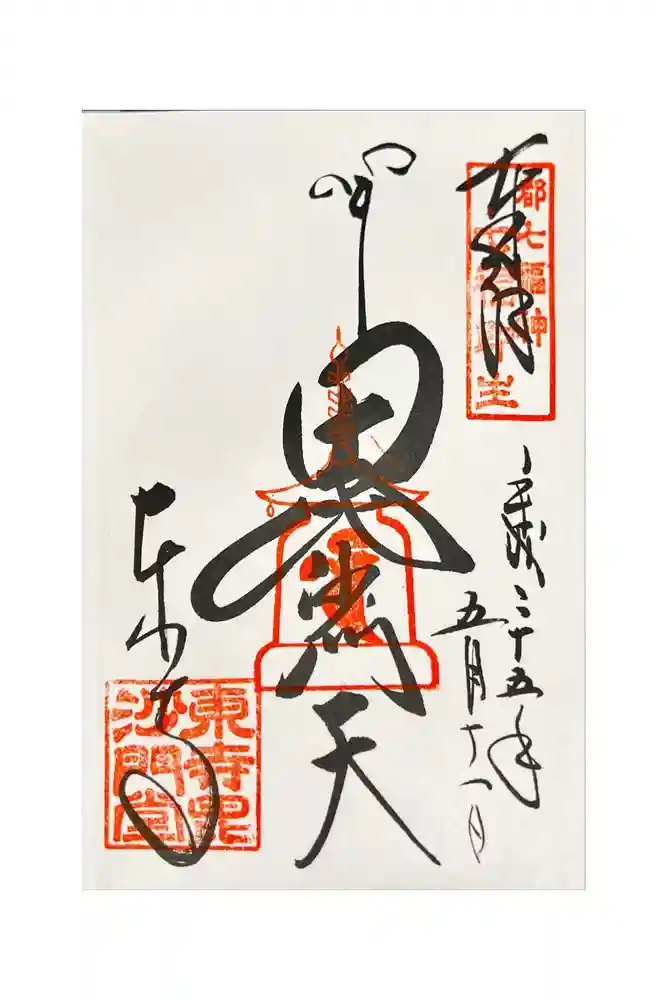 奉拝
都七福神
平成二十五年
五月十一日
毘沙門天
東寺
東寺毘
沙門堂